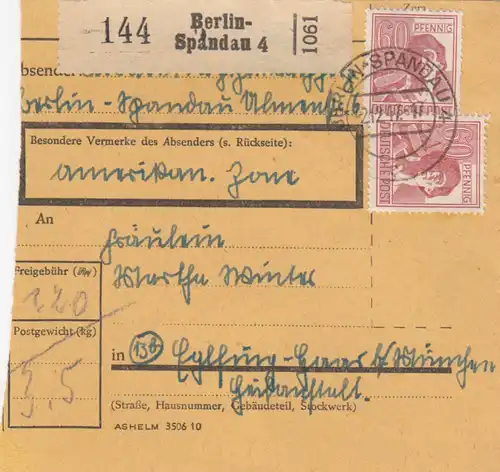 144 Berlin-Spandau 4 1061
60 PFENNIG
DEUTSCHE POST
BERLIN-SPANDAU
Absender
Berlin-Spandau Ulmenstr. 6
Besondere Vermerke des Absenders (s. Rückseite):
Amerikan. Zone
60 PFENNIG
DEUTSCHE POST
An
Fräulein
Martha Winter
Freigebühr (RM)
120
Postgewicht (kg)
3,5
in (13b) Eglfing-Haar b/München
Heilanstalt.
(Straße, Hausnummer, Gebäudeteil, Stockwerk)
ASHELM 3506 10